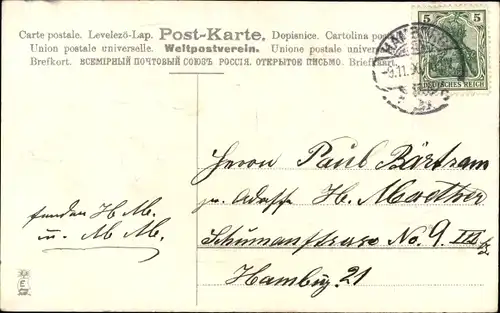 Carte postale. Levelező-Lap. Post-Karte. Dopisnice. Cartolina pos
Union postale universelle. Weltpostverein. Unione postale univers
Brefkort. ВСЕМІРНЫЙ ПОЧТОВЫЙ СОЮЗЪ РОССІЯ. ОТКРЫТОЕ ПИСЬМО. Brief
5 5
DEUTSCHES REICH
Herrn Paul Bärtram
pr. Adresse H. Moether
Schumannstrasse No. 9 III
Hamburg 21
senden H. M.
u. M. M.